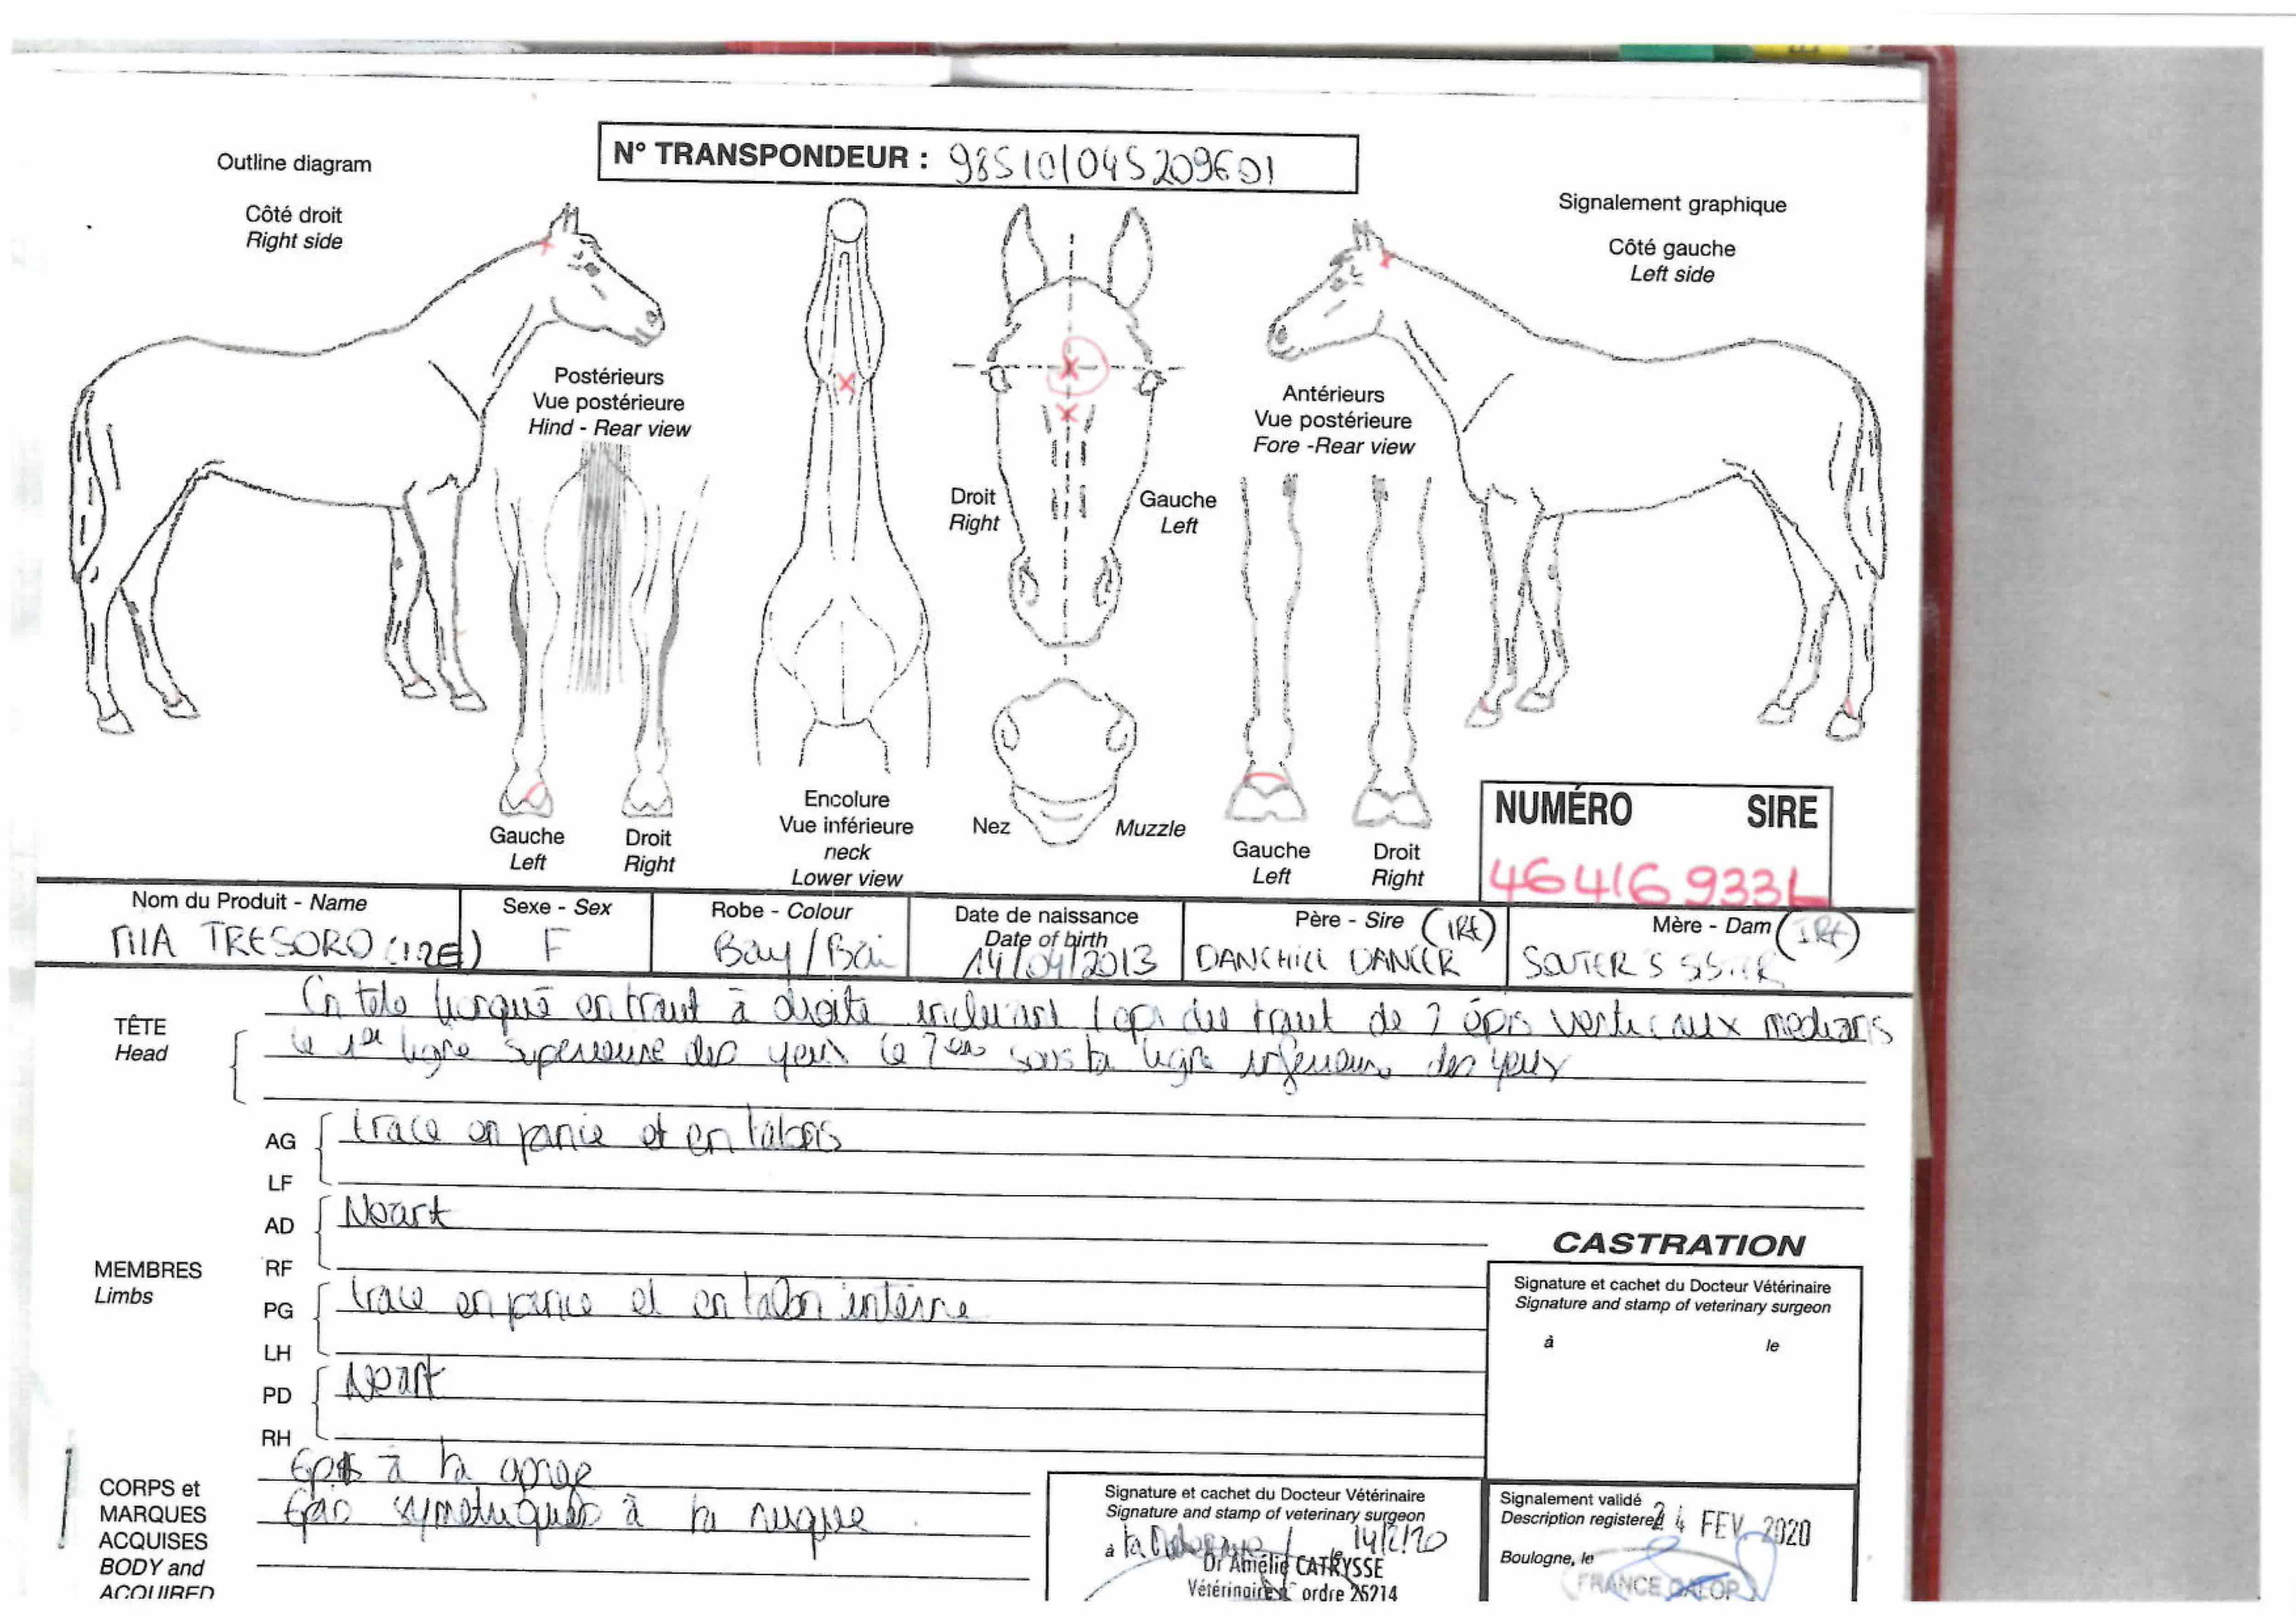 N° TRANSPONDEUR : 985101045209601
Outline diagram
Côté droit
Right side
Signalement graphique
Côté gauche
Left side
Postérieurs
Vue postérieure
Hind - Rear view
Antérieurs
Vue postérieure
Fore -Rear view
Droit
Right
Gauche
Left
Gauche
Left
Droit
Right
Encolure
Vue inférieure
neck
Lower view
Nez
Muzzle
Gauche
Left
Droit
Right
NUMÉRO SIRE
46416933L
Nom du Produit - Name
MIA TRESORO (IRE)
Sexe - Sex
F
Robe - Colour
Bay/Bai
Date de naissance
Date of birth
14/04/2013
Père - Sire (IRE)
DANEHILL DANCER
Mère - Dam (IRE)
SOUTER'S SISTER
TÊTE
Head
En tete en haut à droite incluant du haut de 2 épis verticaux medians
le 1er ligne superieure des yeux le 2eme sous la ligne inferieure des yeux
MEMBRES
Limbs
AG
LF
trace en prince et en talons
AD
RF
Neant
PG
LH
trace en prince et en talon interne
PD
RH
Neant
CORPS et
MARQUES
ACQUISES
BODY and
ACQUIRED
Epis à la gorge
Epis symetriques à la nuque
CASTRATION
Signature et cachet du Docteur Vétérinaire
Signature and stamp of veterinary surgeon
à le
Signature et cachet du Docteur Vétérinaire
Signature and stamp of veterinary surgeon
à le 14/2/20
Dr Amélie CATRYSSE
Vétérinaire ordre 25214
Signalement validé
Description registered
24 FEV 2020
Boulogne, le
FRANCE GALOP